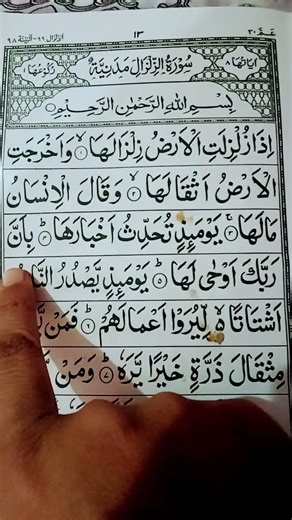 الزلزال ٩٩ - البينة ٩٨
١٣
عم ٣٠
اٰيَاتُهَا ٨
سُوْرَةُ الزِّلْزَالِ مَدَنِيَّةٌ
رُكُوْعُهَا ١
بِسْمِ اللّٰهِ الرَّحْمٰنِ الرَّحِيْمِ
اِذَا زُلْزِلَتِ الْاَرْضُ زِلْزَالَهَا ۙ﴿۱﴾ وَاَخْرَجَتِ
الْاَرْضُ اَثْقَالَهَا ۙ﴿۲﴾ وَقَالَ الْاِنْسَانُ
مَا لَهَا ۚ﴿۳﴾ يَوْمَئِذٍ تُحَدِّثُ اَخْبَارَهَا ؕ﴿۴﴾ بِاَنَّ
رَبَّكَ اَوْحٰى لَهَا ؕ﴿۵﴾ يَوْمَئِذٍ يَّصْدُرُ
اَشْتَاتًا ۙ۬ لِّيُرَوْا اَعْمَالَهُمْ ؕ﴿۶﴾ فَمَنْ
مِثْقَالَ ذَرَّةٍ خَيْرًا يَّرَهٗ ؕ﴿۷﴾ وَمَنْ